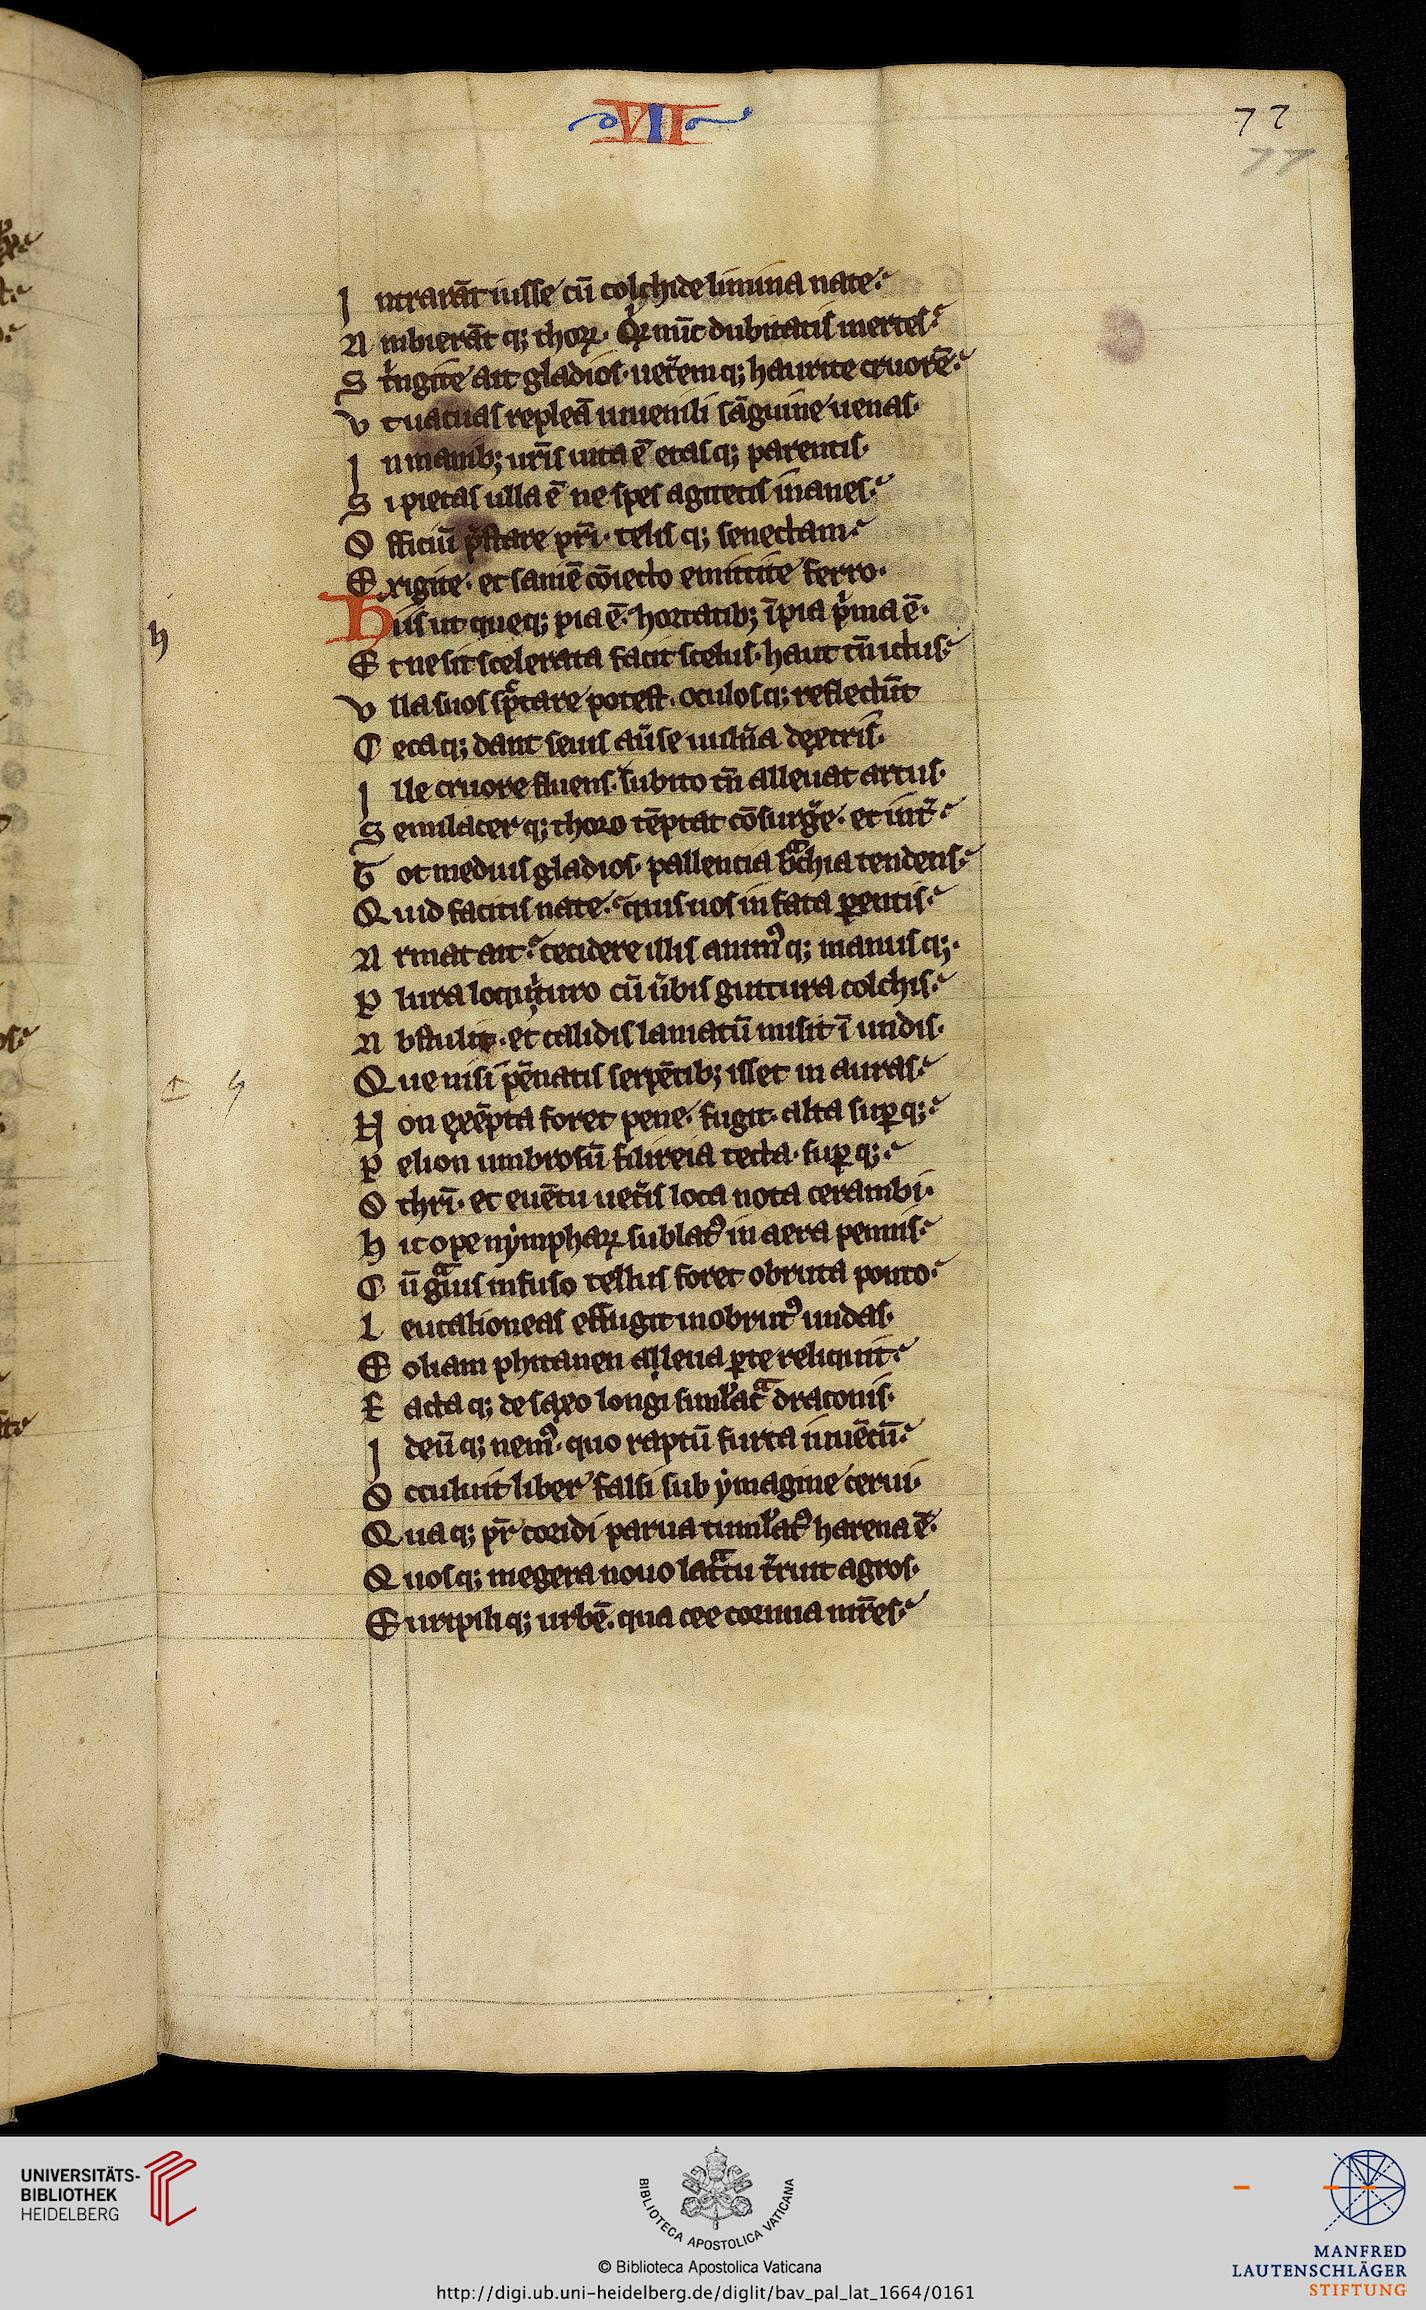 VII
77
77
Intrarāt iusse cū colchide limina nate
Ambierāt q; thoꝝ. Qͥd nūc dubitatis inertes
Stͥngite ait gladios. uet̄em q; haurite cruorē
Vt uacuas repleā iuuenili sāguine uenas.
In manib; ur̄is uita ē etas q; parentis.
Si pietas ulla ē ne spes agitetis inanes
Officiū p̄stare pr̄i. telis q; senectam
Exigite. et saniē cōiecto emittite ferro.
Hiis ut queq; pia ē. hortatib; īpia pͥma ē.
h
Et ne sit scelerata facit scelus. haut tn̄ ictus
Vlla suos sp̄ctare potest. oculosq; reflectūt
Cecaq; dant seuis au̅se uuln̄a dextris.
Ille cruore fluens. subito tn̄ alleuat artus.
Semilacerq; thoro tēptat cōsurḡe. et int̄
Tot medius gladios. pallencia bͣchia tendens
Quid facitis nate. quis uos in fata ꝑentis
Armat ait. cecidere illis animꝰq; manusq;.
Plura locuturo cū ūbis guttura colchis
Abstulit. et calidis laniatū misit ī undis.
Que nisi pēnatis serpētib; isset in auras
c h
Non exēpta foret pene. fugit alta suꝑq;
Pelion umbrosū filireia tecta. suꝑq;
Othrī. et euētu uet̄is loca nota cerambi.
Hic ope nẏmphaꝝ sublatꝰ in aera pennis
Cū gͣuis infuso tellus foret obruta ponto
Leucalioneas effugit inobrutꝰ undas.
Eoliam phitanen alleua ꝑte reliquit
Factaq; de saxo longi simlͣacͣ draconis.
Ideūq; nemꝰ. quo raptū furta iuuēcū
Occuluit liber falsi sub ẏmagine cerui.
Quaq; pr̄ coridi parua tumlatꝰ harena ē.
Quosq; megera nouo latͣtu t̄ruit agros.
Euripiliq; urbē. qua cee cornua mr̄es
UNIVERSITÄTS-
BIBLIOTHEK
HEIDELBERG
BIBLIOTECA APOSTOLICA VATICANA
© Biblioteca Apostolica Vaticana
http://digi.ub.uni-heidelberg.de/diglit/bav_pal_lat_1664/0161
MANFRED
LAUTENSCHLÄGER
STIFTUNG